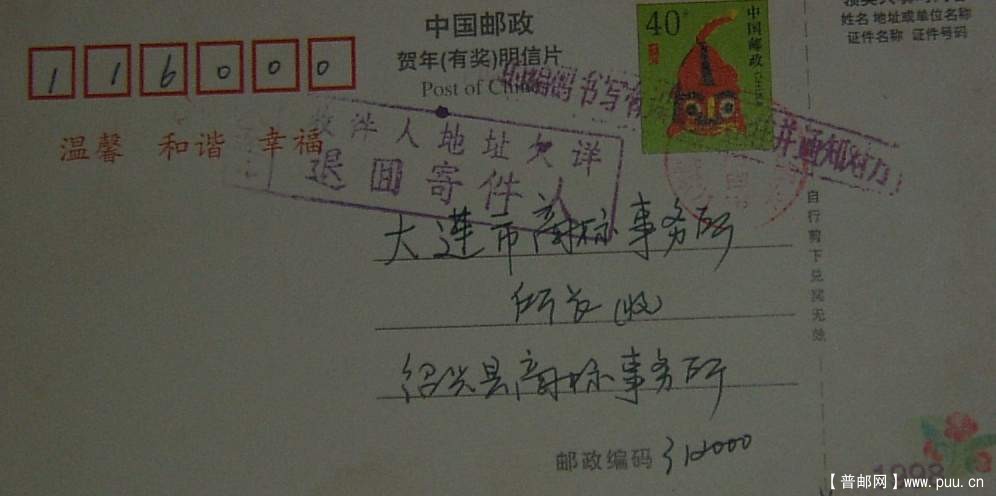 中国邮政
贺年(有奖)明信片
Post of China
116000
温馨 和谐 幸福
40
中国邮政
姓名 地址或单位名称
证件名称 证件号码
收件人地址欠详
退回寄件人
编码书写
并通知对方
大莲市商标事务所
所长(收)
绍兴县商标事务所
邮政编码 312000
自行剪下兑奖无效
1998
【普邮网】www.puu.cn